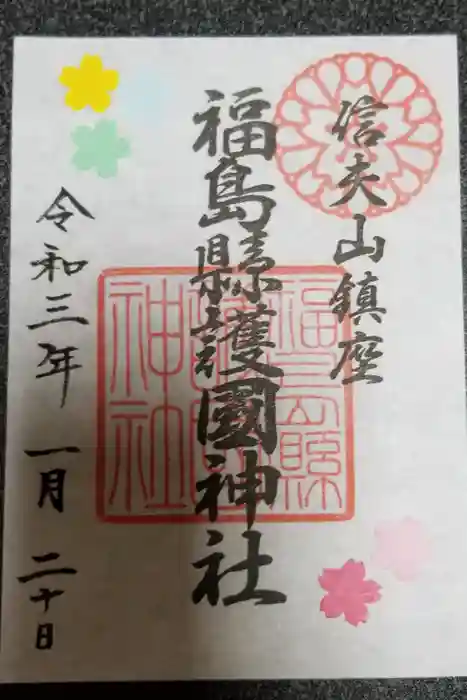 信夫山鎮座
福島縣護國神社
令和三年 一月 二十日
福島縣
護國
神社